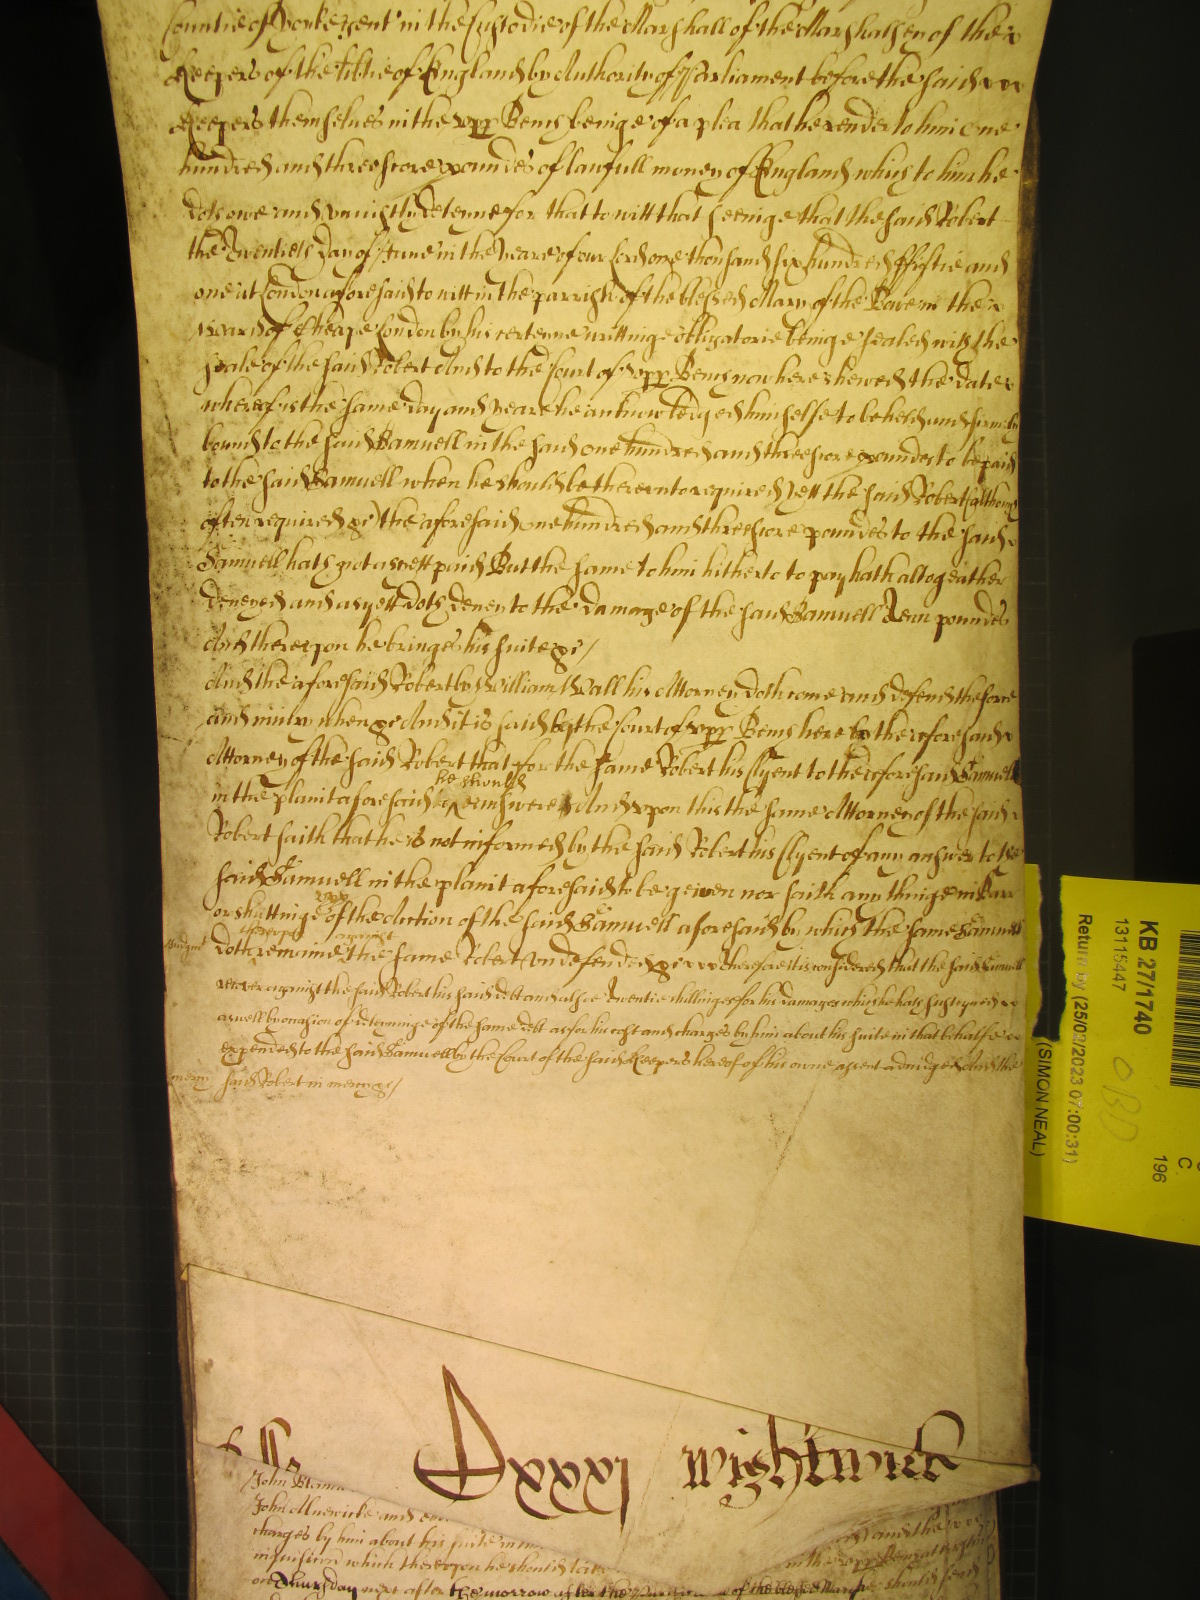 Countie of Yorke gent' in the Custodie of the Marshall of the Marshalsey of the
Keepers of the libtie of England by Authority of Parliament before the said
Keepers themselves in the upp Bench beinge of a plea that he render to him One
hundred and threescore poundes of lawfull money of England which to him he
doth owe and uniustly detenne for that to witt that seeinge that the said Robert
the Twentieth Day of June in the yeare of our lord one thousand six hundred ffiftie and
one at London aforesaid to witt in the parrish of the blessed Mary of the Bowe in the
ward of Cheape London by his certenne writtinge obligatorie beinge sealed with the
seale of the said Robert And to the Court of upp Bench now here shewed the date
whereof is the same day and yeare he acknowledged himselfe to be held and firmely
bound to the said Samuell in the said one hundred and threescore poundes to be paid
to the said Samuell when he should be thereunto required yett the said Robert (although
often required &c) the aforesaid one hundred and threescore poundes to the said
Samuell hath not as yett paid But the same to him hitherto to pay hath altogeather
denyed and as yett doth deney to the damage of the said Samuell Tenn poundes
And thereupon he bringes his suite &c/
And the aforesaid Robert by William Wall his Attorney doth come and defend the force
and iniury when &c And it is said by the Court of upp Bench here to the aforesaid
Attorney of the said Robert that for the same Robert his Clyent to the aforesaid Samuell
he should
in the plaint aforesaid answere And upon this the same Attorney of the said
Robert saith that he is not informed by the said Robert his Clyent of any answer to the
said Samuell in the plaint aforesaid to be geiven nor saith any thinge in Barr
upp
or shuttinge of the Action of the said Samuell aforesaid by which the same Samuell
thereof against
Iudgmt doth remaine the same Robert undefended &c Therefore it is considered that the said Samuell
recover against the said Robert his said debt and alsoe Twentie shillinges for his damages which he hath susteyned
aswell by occasion of detenninge of the same debt as for his cost and charges by him about his suite in that behalfe
expended to the said Samuell by the Court of the said Keepers hereof of his owne assent adiudged And the
mercy said Robert in mercy &c/
Dxxxj wightwick
John
John Alnewicke and
charges by him about his suite in
inquisicion which thereupon he should take in the upp Bench at
on Thursday next after the morrow after the of the blessed Marye should send
KB 27/1740
13115447
Return by (25/03/2023 07:00:31)
(SIMON NEAL)
OBD
C
196